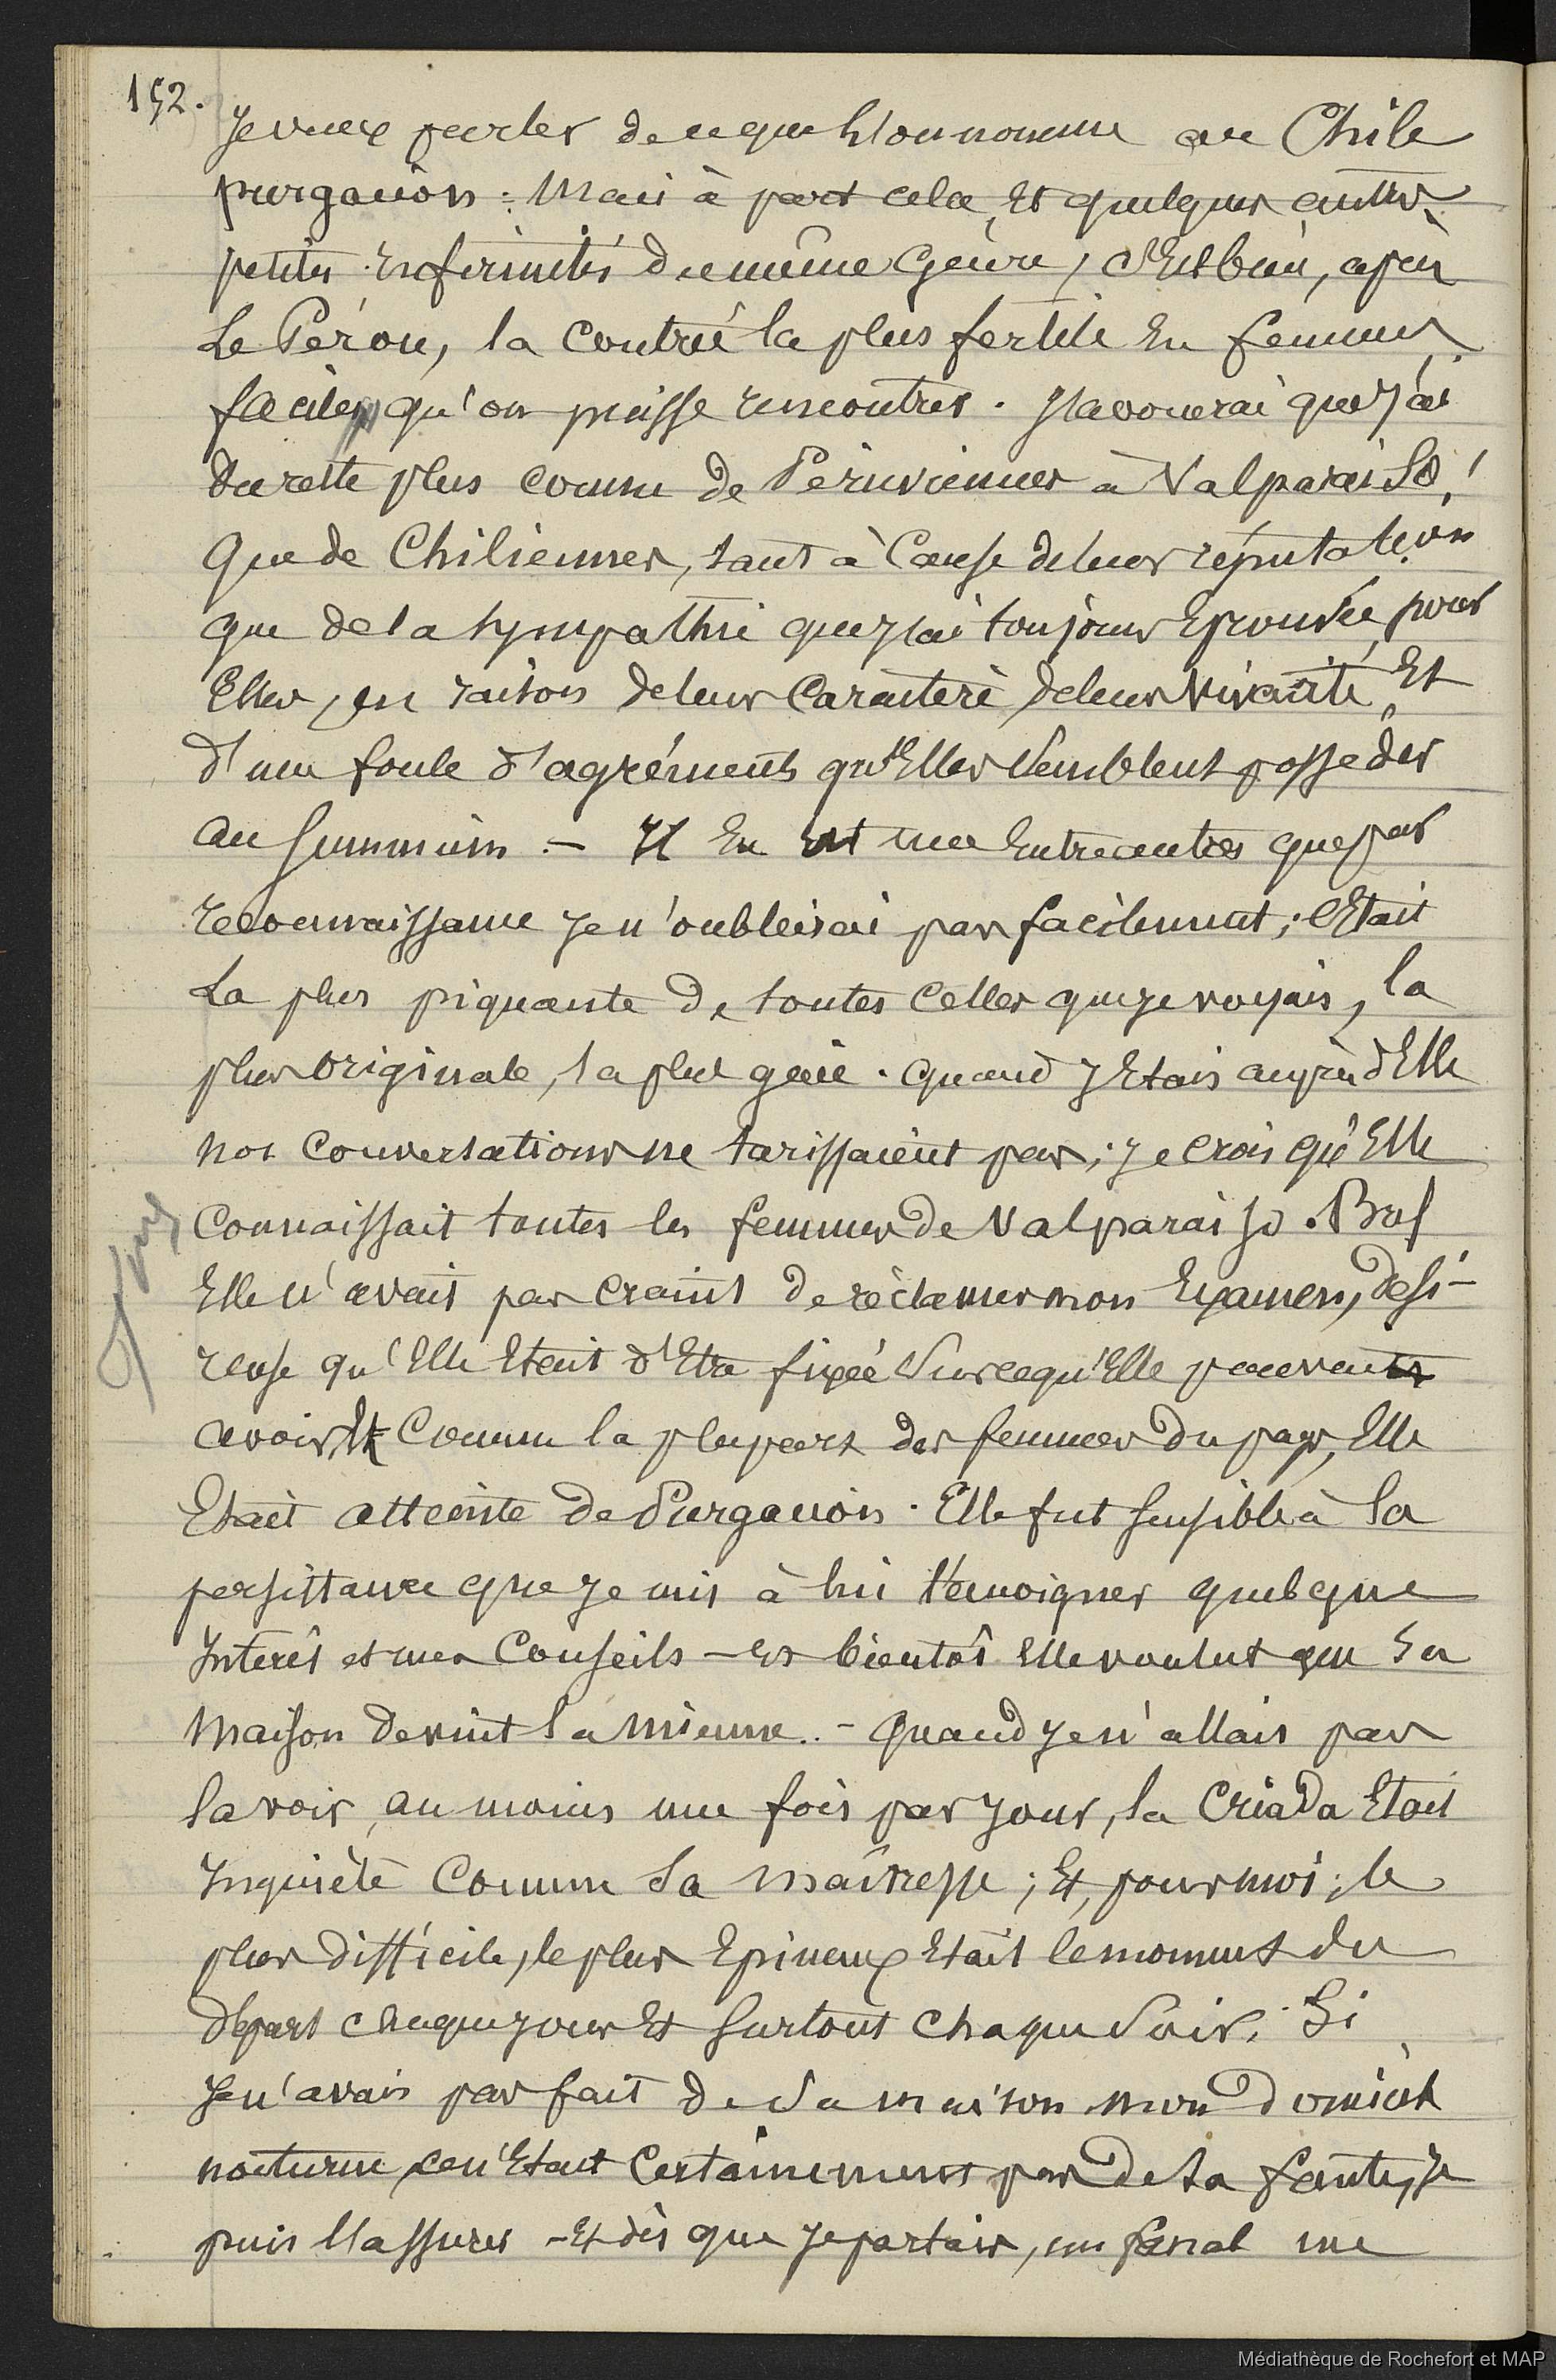 152.
Je veux parler de ce que l'on nomme au Chile
purgacion : Mais à part cela, et quelques autres
petites Enfirmités du même genre, c'Est bien, après
Le Pérou, la contrée la plus fertile En femmes
faciles qu'on puisse rencontrer. J'avouerai que j'ai
du reste plus connu de Péruviennes à Valparaiso,
que de Chiliennes, tant à Cause de leur réputation
que de la sympathie que j'ai toujours Eprouvée pour
Elles, en raison de leur Caractère, de leur vivacité, Et
d'une foule d'agréments qu'Elles semblent posseder
au Summum. – Il En est une Entre autres que par
reconnaissance je n'oublierai pas facilement ; c'Etait
La plus piquante de toutes Celles que je voyais, la
plus originale, la plus gaie. Quand j'Etais auprès d'Elle
nos Conversations ne tarissaient pas ; je crois qu'Elle
Connaissait toutes les femmes de Valparaiso. Bref
Elle n'avait pas craint de réclamer mon Examen, dési-
reuse qu'Elle Etait d'Etre fixée sur ce qu'Elle pouvait
avoir, Et Comme la plupart des femmes du pays, Elle
Etait atteinte de Purgacion. Elle fut sensible à la
persistance que je mis à lui témoigner quelque
Interêt et mes Conseils – Et bientôt Elle voulut que sa
maison devint la mienne.. – Quand je n'allais pas
la voir, au moins une fois par jour, la Criada Etait
Inquiète Comme sa maîtresse ; Et, pour moi, le
plus difficile, le plus Epineux Etait le moment du
départ chaque jour Et surtout chaque soir. Si
Je n'avais pas fait de sa maison mon domicile
nocturne, ce n'Etait Certainement pas de sa faute, je
puis l'assurer – Et dès que je partais, un fanal me
Médiathèque de Rochefort et MAP